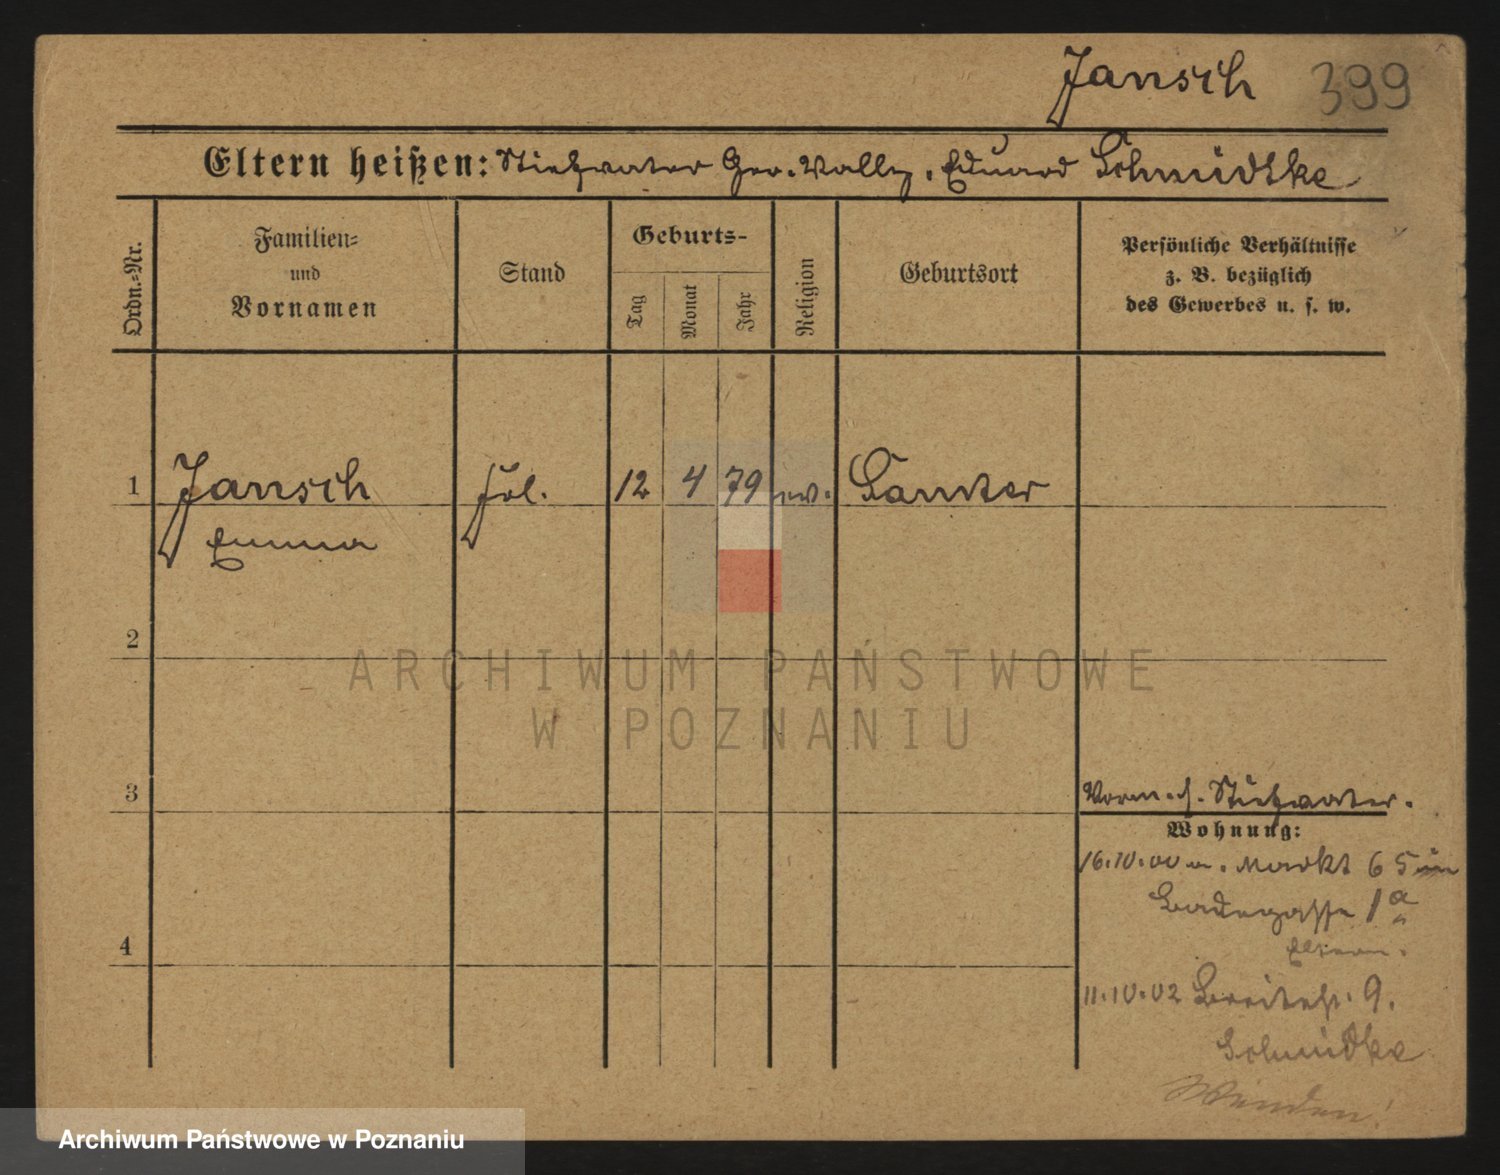 Jansch 399
Eltern heißen: Stiefvater Ger. Vollz. Eduard Schmidtke
Ordn.-Nr.
Familien-
und
Vornamen
Stand
Geburts-
Tag
Monat
Jahr
Religion
Geburtsort
Persönliche Verhältnisse
z. B. bezüglich
des Gewerbes u. s. w.
1 Jansch frl. 12 4 79 ev. Samter
Emma
2
ARCHIWUM PAŃSTWOWE
W POZNANIU
3
Vorm. d. Stiefvater.
Wohnung:
16.10.00 a. Markt 65
Badegasse 1a
Eltern.
4
11.10.02 Breitestr. 9.
Schmidtke
Wenden!
Archiwum Państwowe w Poznaniu